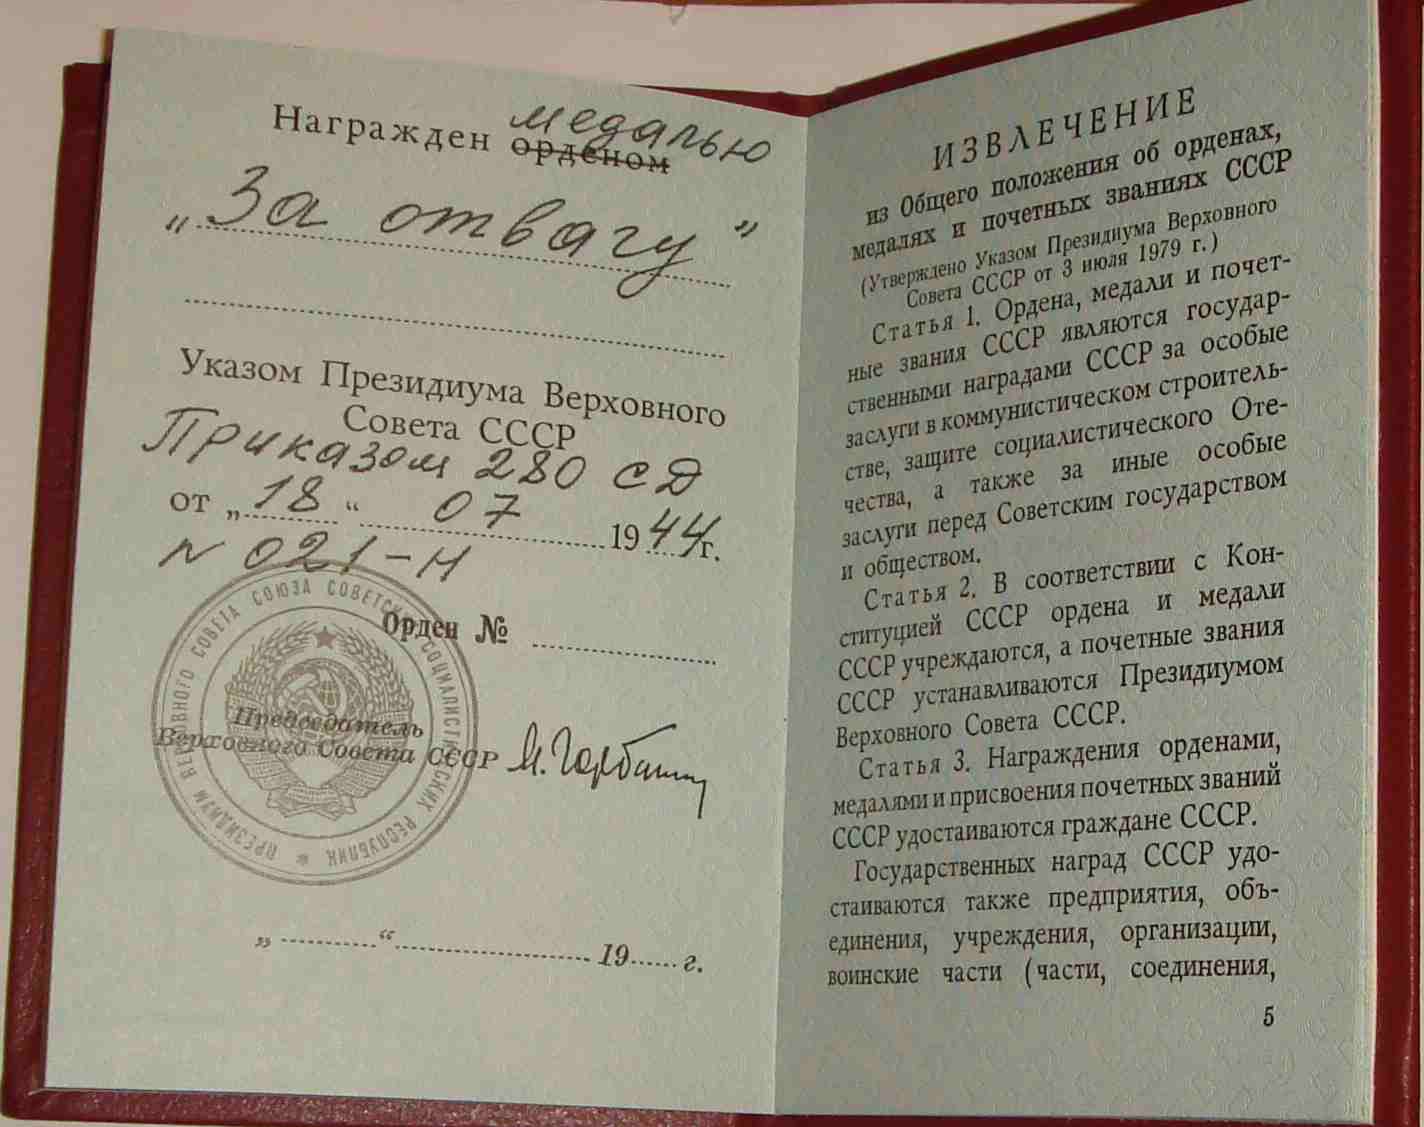 медалью
Награжден орденом
„За отвагу”
Указом Президиума Верховного
Совета СССР
Приказом 280 сд
от „18“ 07 1944 г.
N 021-н
Орден №
ПРЕЗИДИУМ ВЕРХОВНОГО СОВЕТА СОЮЗА СОВЕТСКИХ СОЦИАЛИСТИЧЕСКИХ РЕСПУБЛИК
Председатель
Верховного Совета СССР М. Горбачев
„ “ 19 г.
ИЗВЛЕЧЕНИЕ
из Общего положения об орденах,
медалях и почетных званиях СССР
(Утверждено Указом Президиума Верховного
Совета СССР от 3 июля 1979 г.)
Статья 1. Ордена, медали и почет-
ные звания СССР являются государ-
ственными наградами СССР за особые
заслуги в коммунистическом строитель-
стве, защите социалистического Оте-
чества, а также за иные особые
заслуги перед Советским государством
и обществом.
Статья 2. В соответствии с Кон-
ституцией СССР ордена и медали
СССР учреждаются, а почетные звания
СССР устанавливаются Президиумом
Верховного Совета СССР.
Статья 3. Награждения орденами,
медалями и присвоения почетных званий
СССР удостаиваются граждане СССР.
Государственных наград СССР удо-
стаиваются также предприятия, объ-
единения, учреждения, организации,
воинские части (части, соединения,
5